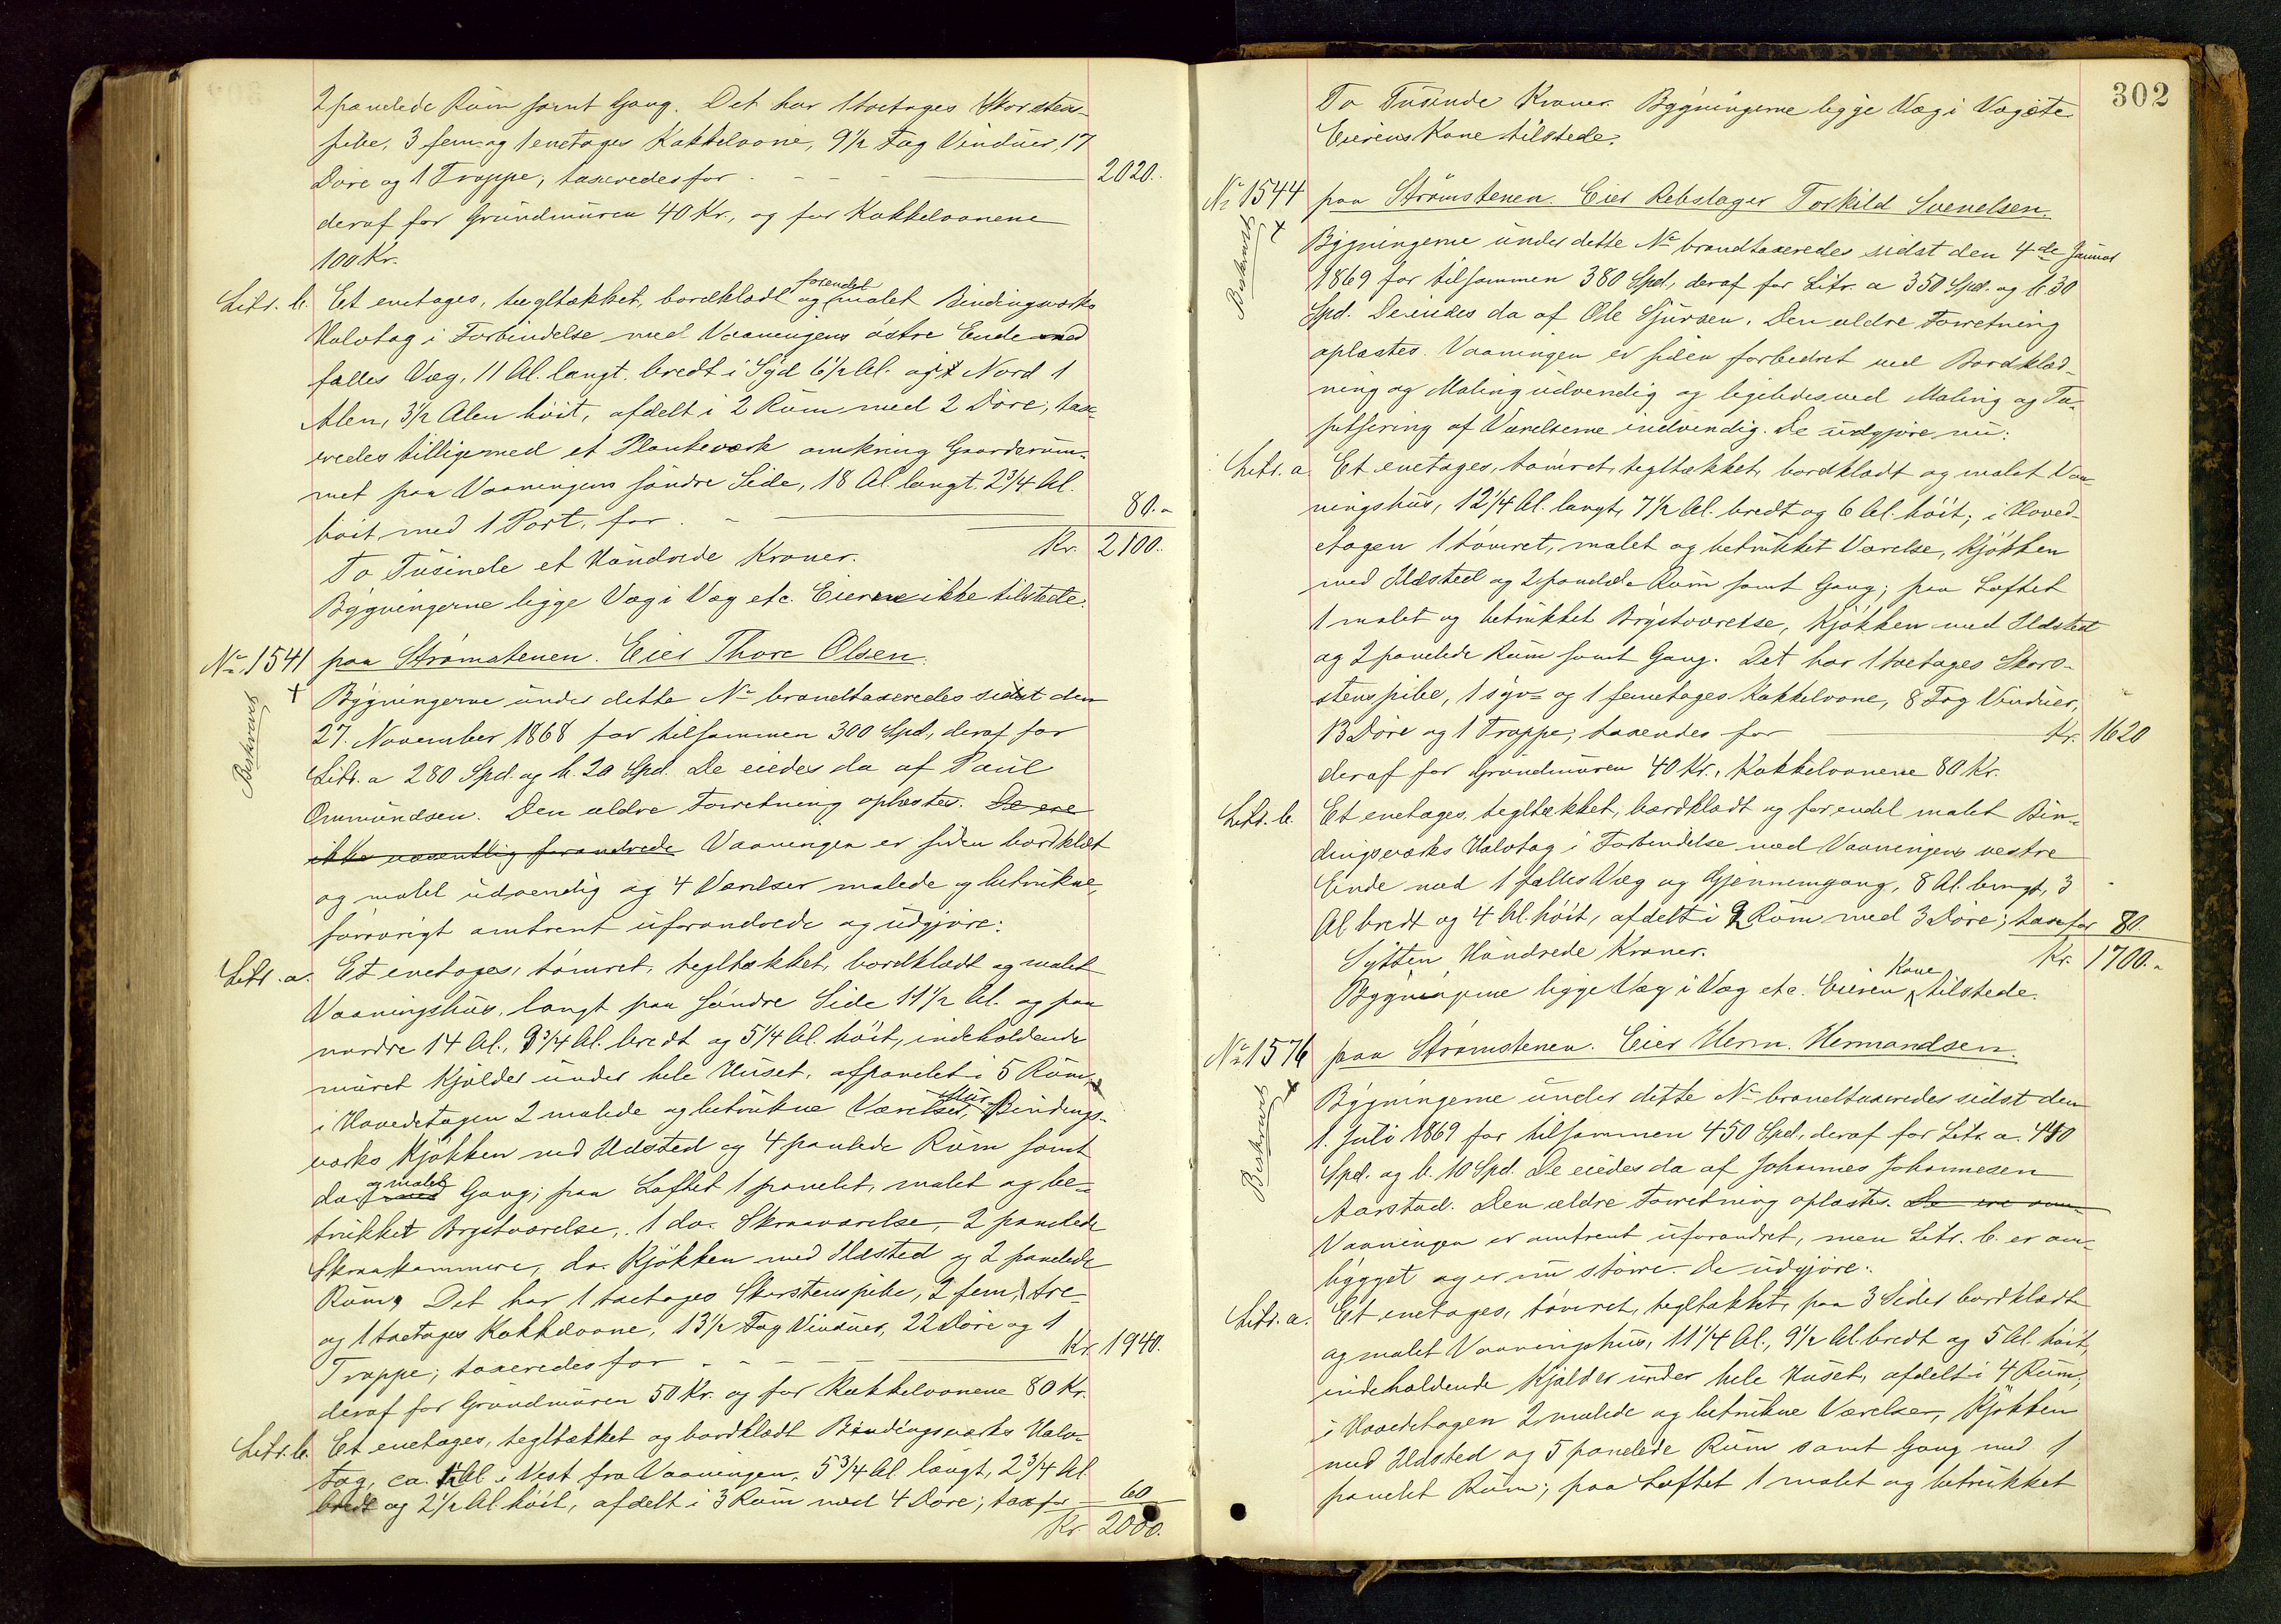 2 panelede Rüm samt Gang. Det har 1 toetages Skorstens-
pibe, 3 fem- og 1 enetages Kakkelovne, 9 1/2 Fag Vindüer, 17
Döre og 1 Trappe; taxeredes for 2020.
deraf for Gründmüren 40 Kr., og for Kakkelovnene
100 Kr.
Litr. b. Et enetages, tegltækket, bordklædt og forendel malet Bindingsværks
Halvtag i Forbindelse med Vaaningens østre Ende med
fælles Væg, 11 Al. langt, bredt i Syd 6 1/2 Al. og i Nord 1
Alen, 3 1/2 Alen höit, afdelt i 2 Rüm med 2 Döre; taxe-
redes tilligemed et Plankeværk omkring Gaardsrüm-
met paa Vaaningens söndre Side, 18 Al. langt, 2 3/4 Al.
höit med 1 Port, for 80.-
To Tüsinde et Hündrede Kroner. Kr. 2100.
Bÿgningerne ligge Væg i Væg etc. Eieren ikke tilstede.
No 1541 paa Strömstenen. Eier Thore Olsen.
Beskrevet
Bÿgningerne ünder dette No brandtaxeredes sidst den
27. November 1868 for tilsammen 300 Spd, deraf for
Litr. a 280 Spd. og b. 20 Spd. De eiedes da af Paül
Ommündsen. Den ældre Forretning oplæstes. De ere
ikke væsentlig forandrede Vaaningen er siden bordklædt
og malet üdvendig og 4 Værelser malede og betrükne,
forövrigt omtrent üforandrede og üdgjöre:
Litr. a. Et enetages, tömret, tegltækket, bordklædt og malet
Vaaningshüs, langt paa söndre Side 11 1/2 Al. og paa
nordre 14 Al., 9 3/4 Al. bredt og 5 1/4 Al. höit, indeholdende
müret Kjælder ünder hele Hüset, afpanelet i 5 Rüm,
i Hovedetagen 2 malede og betrükne Værelser, Bindings-
værks Kjökken med Ildsted og 4 panlede Rüm samt
do. og malet Gang; paa Loftet 1 panelet, malet og be-
trükket Brystværelse, 1 do. Skraaværelse, 2 panelede
Skraakammere, do. Kjökken med Ildsted og 2 panelede
Rüm. Det har 1 toetages Skorstenspibe, 2 fem, 1 tre-
og 1 toetages Kakkelovne, 13 1/2 Fag Vindüer, 22 Döre og 1
Trappe; taxeredes for Kr. 1940.
deraf for Gründmüren 50 Kr. og for Kakkelovnene 80 Kr.
Litr. b. Et enetages, tegltækket og bordklædt Bindingsværks Halv-
tag, ca. Al. i Vest fra Vaaningen, 5 3/4 Al. langt, 2 3/4 Al.
bredt og 2 1/2 Al. höit, afdelt i 3 Rüm med 4 Döre; tax for 60
Kr. 2000.
302
To Tüsinde Kroner. Bygningerne ligge Væg i Væg etc.
Eierens Kone tilstede.
No 1544 paa Strömstenen. Eier Rebslager Torkild Svendsen.
Beskrevet
Bÿgningerne ünder dette No brandtaxeredes sidst den 4de Janüar
1869 for tilsammen 380 Spd, deraf for Litr. a 350 Spd. og b. 30
Spd. De eiedes da af Ole Sjürsen. Den ældre Forretning
oplæstes. Vaaningen er siden forbedret ved Bordklæd-
ning og Maling üdvendig og ligeledes ved Maling og Ta-
petsering af Værelserne indvendig. De üdgjöre nü:
Litr. a. Et enetages, tömret, tegltækket, bordklædt og malet Vaa-
ningshüs, 12 1/4 Al. langt, 7 1/2 Al. bredt og 6 Al. höit; i Hoved-
etagen 1 tömret, malet og betrükket Værelse, Kjökken
med Ildsted og 2 panelede Rüm samt Gang; paa Loftet
1 malet og betrükket Brÿstværelse, Kjökken med Ildsted
og 2 panelede Rüm samt Gang. Det har 1 toetages Skor-
stenspibe, 1 sÿv- og 1 femetages Kakkelovne, 8 Fag Vindüer,
13 Döre og 1 Trappe; taxeredes for Kr. 1620
deraf for Gründmüren 40 Kr., Kakkelovnene 80 Kr.
Litr. b. Et enetages, tegltækket, bordklædt og forendel malet Bin-
dingsværks Halvtag i Forbindelse med Vaaningens vestre
Ende med 1 fælles Væg og Gjennemgang, 8 Al. langt, 3
Al. bredt og 4 Al. höit, afdelt i 2 Rüm med 3 Döre; tax for 80.
Sÿtten Hündrede Kroner. Kr. 1700.-
Bÿgningerne ligge Væg i Væg etc. Eieren Kone tilstede.
No 1576 paa Strömstenen. Eier Herm. Hermandsen.
Beskrevet
Bÿgningerne ünder dette No brandtaxeredes sidst den
1. Jüli 1869 for tilsammen 450 Spd., deraf for Litr. a. 440
Spd. og b. 10 Spd. De eiedes da af Johannes Johannesen
Aarstad. Den ældre Forretning oplæstes. De ere om-
Vaaningen er omtrent üforandret, men Litr. b. er om-
bÿgget og er nü större. De üdgjöre:
Litr. a. Et enetages, tömret, tegltækket, paa 3 Sider bordklædt
og malet Vaaningshüs, 11 1/4 Al., 9 1/2 Al. bredt og 5 Al. höit,
indeholdende Kjælder ünder hele Hüset, afdelt i 4 Rüm;
i Hovedetagen 2 malede og betrükne Værelser, Kjökken
med Ildsted og 5 panelede Rüm samt Gang med 1
panelet Rüm; paa Loftet 1 malet og betrükket